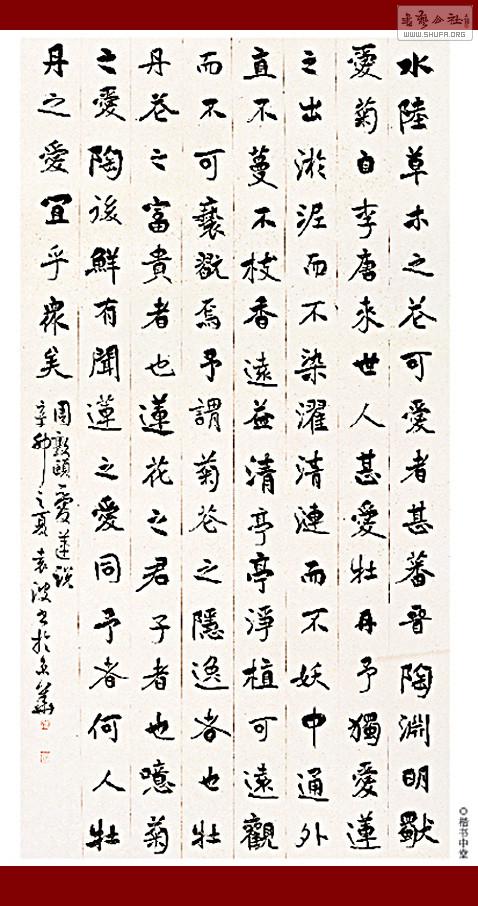 书艺公社
WWW.SHUFA.ORG
水陸草木之花可愛者甚蕃晉陶淵明獨
愛菊自李唐來世人甚愛牡丹予獨愛蓮
之出淤泥而不染濯清漣而不妖中通外
直不蔓不枝香遠益清亭亭淨植可遠觀
而不可褻翫焉予謂菊花之隱逸者也牡
丹花之富貴者也蓮花之君子者也噫菊
之愛陶後鮮有聞蓮之愛同予者何人牡
丹之愛宜乎衆矣
周敦頤愛蓮說
辛卯之夏袁波書於京華
◎楷书中堂